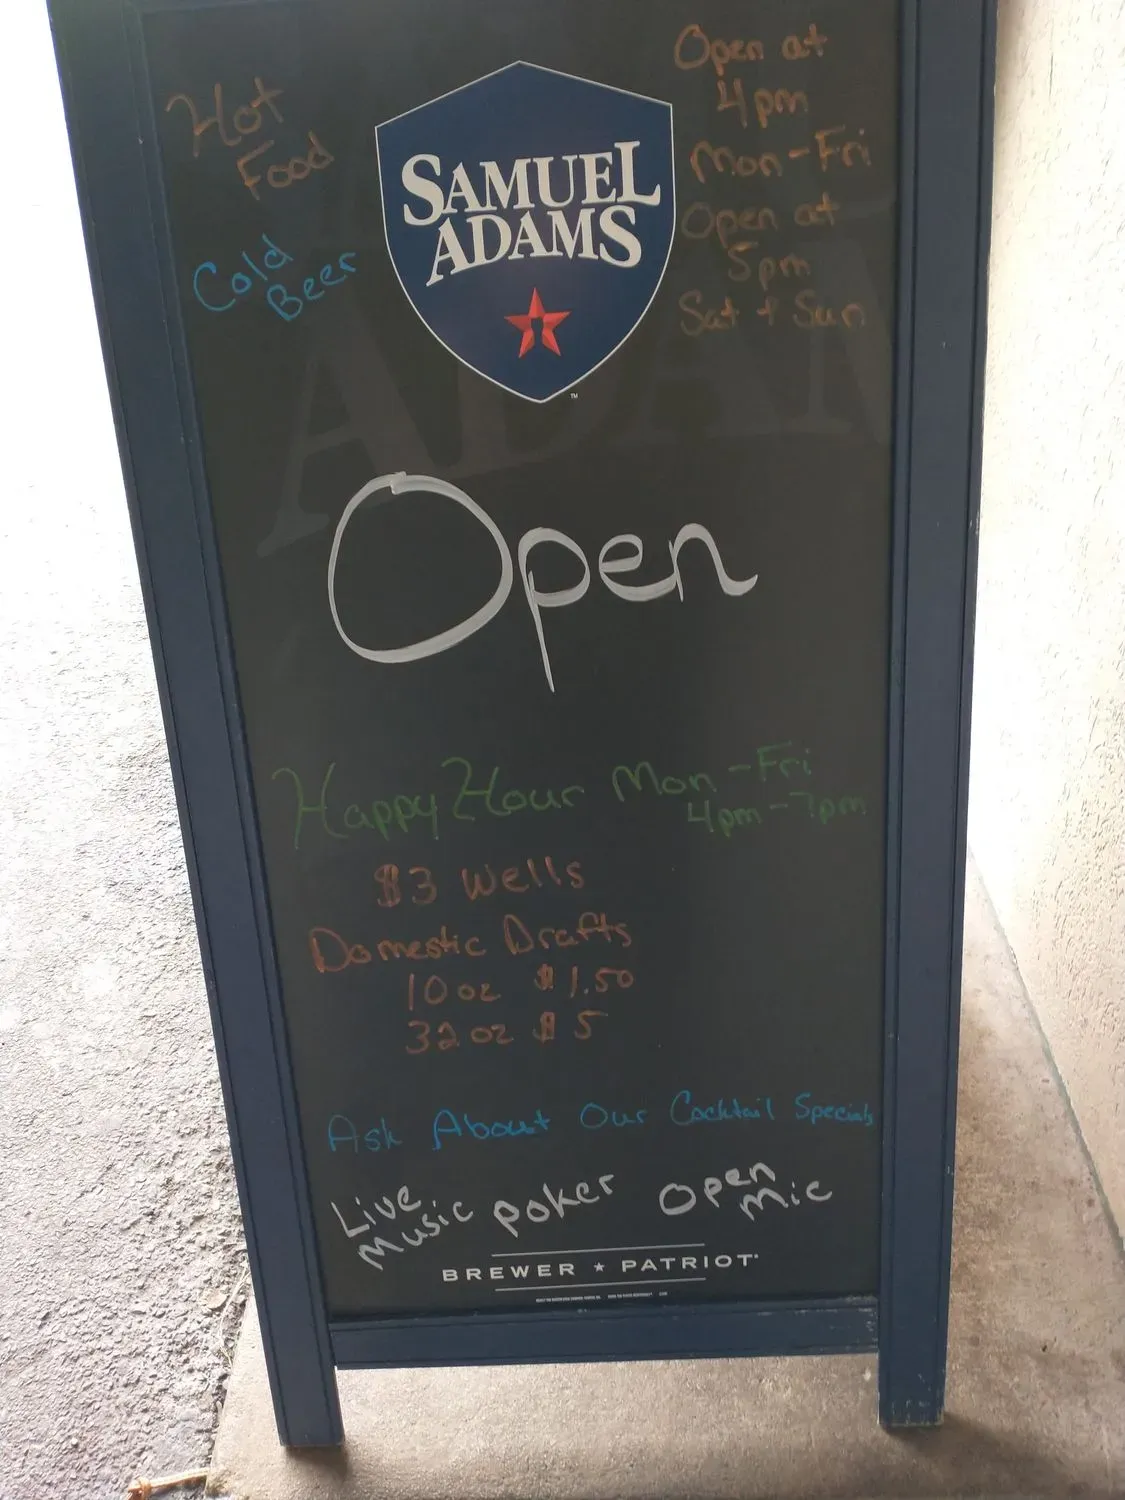 Hot
Food
Cold
Beer
SAMUEL
ADAMS
TM
Open at
4pm
Mon-Fri
Open at
5pm
Sat + Sun
Open
Happy Hour Mon-Fri
4pm-7pm
$3 Wells
Domestic Drafts
10 oz $1.50
32 oz $5
Ask About Our Cocktail Specials
Live
Music
poker
Open
Mic
BREWER ★ PATRIOT